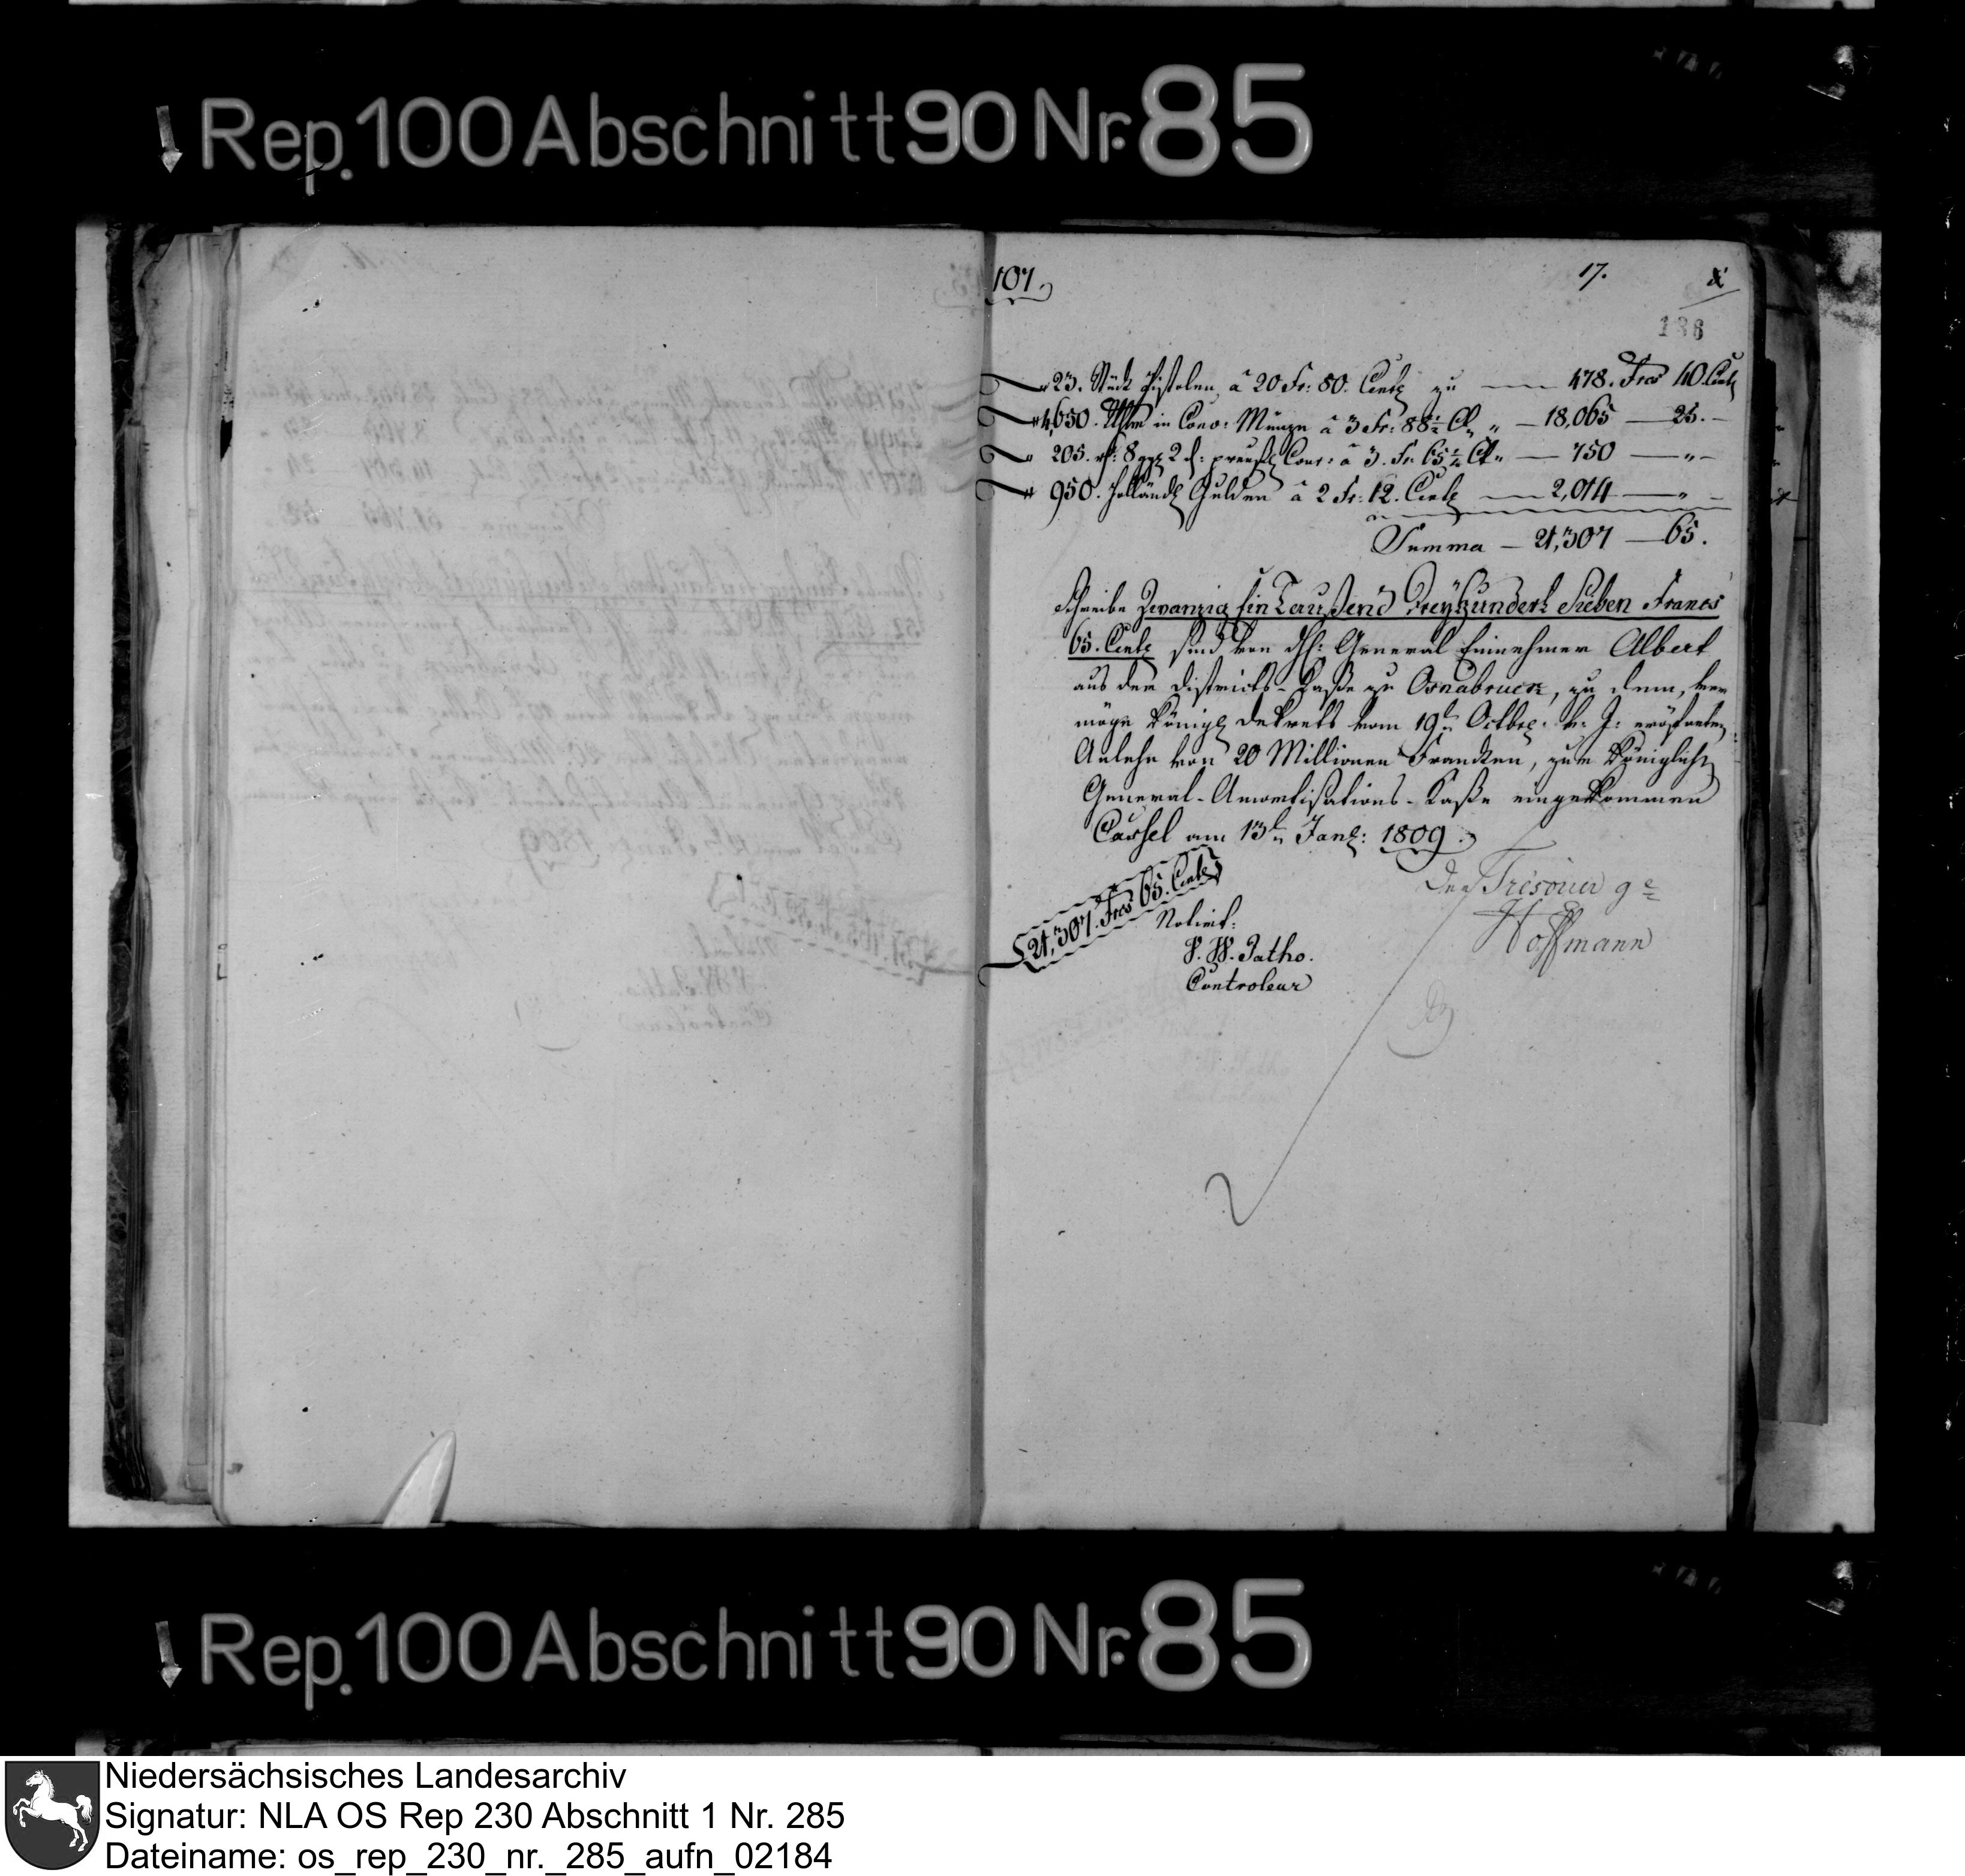 Rep. 100 Abschnitt 90 Nr. 85
107.
17.
186
" 23. Stück Pistolen, à 20 Fr: 80. Cent zu — 478. Frcs 40. Cent
" 4,650. in Conv: Münze à 3 Fr: 88½ Ct " — 18,065 — 25. —
" 205. rt: 8 ggr 2 d: preuß Cour: à 3. Fr. 65¼ Ct " — 750 — " —
" 950. Holländ Gulden à 2 Fr: 12. Cent — 2,014 — " —
Summa — 21,307 — 65.
Schreibe Zwanzig Ein Taußend Dreyhundert Sieben Francs
65. Cent sind von dH: General Einnehmer Albert
aus der Districts-Kaße zu Osnabrueck, zu dem, ver
möge Königl Dekrets vom 19t Octbr: v. J: eröfneten
Anlehn von 20 Millionen Francken, zur Königlichen
General-Amortisations-Kaße eingekommen
Cassel am 13t Jan: 1809.
21,307. Frcs 65. Cent
Der Trésorier ge
Hoffmann
Notirt:
P. W. Patho.
Controleur
Rep. 100 Abschnitt 90 Nr. 85
Niedersächsisches Landesarchiv
Signatur: NLA OS Rep 230 Abschnitt 1 Nr. 285
Dateiname: os_rep_230_nr._285_aufn_02184